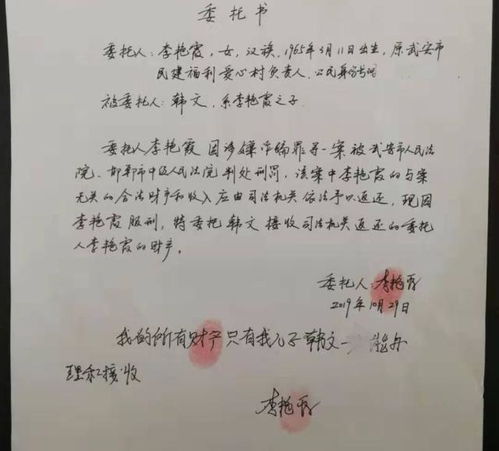 委托书
委托人:李艳霞,女,汉族,1965年3月11日出生,原武安市
民建福利爱心村负责人,公民身份号码
被委托人:韩文,系李艳霞之子
委托人李艳霞因涉嫌诈骗罪等一案被武安市人民法
院、邯郸市中级人民法院判处刑罚,该案中李艳霞的与案
无关的合法财产和收入应由司法机关依法予以返还,现因
李艳霞服刑,特委托韩文接收司法机关返还的委托
人李艳霞的财产。
委托人:李艳霞
2019年10月29日
我的所有财产只有我儿子韩文一
理和接收
李艳霞